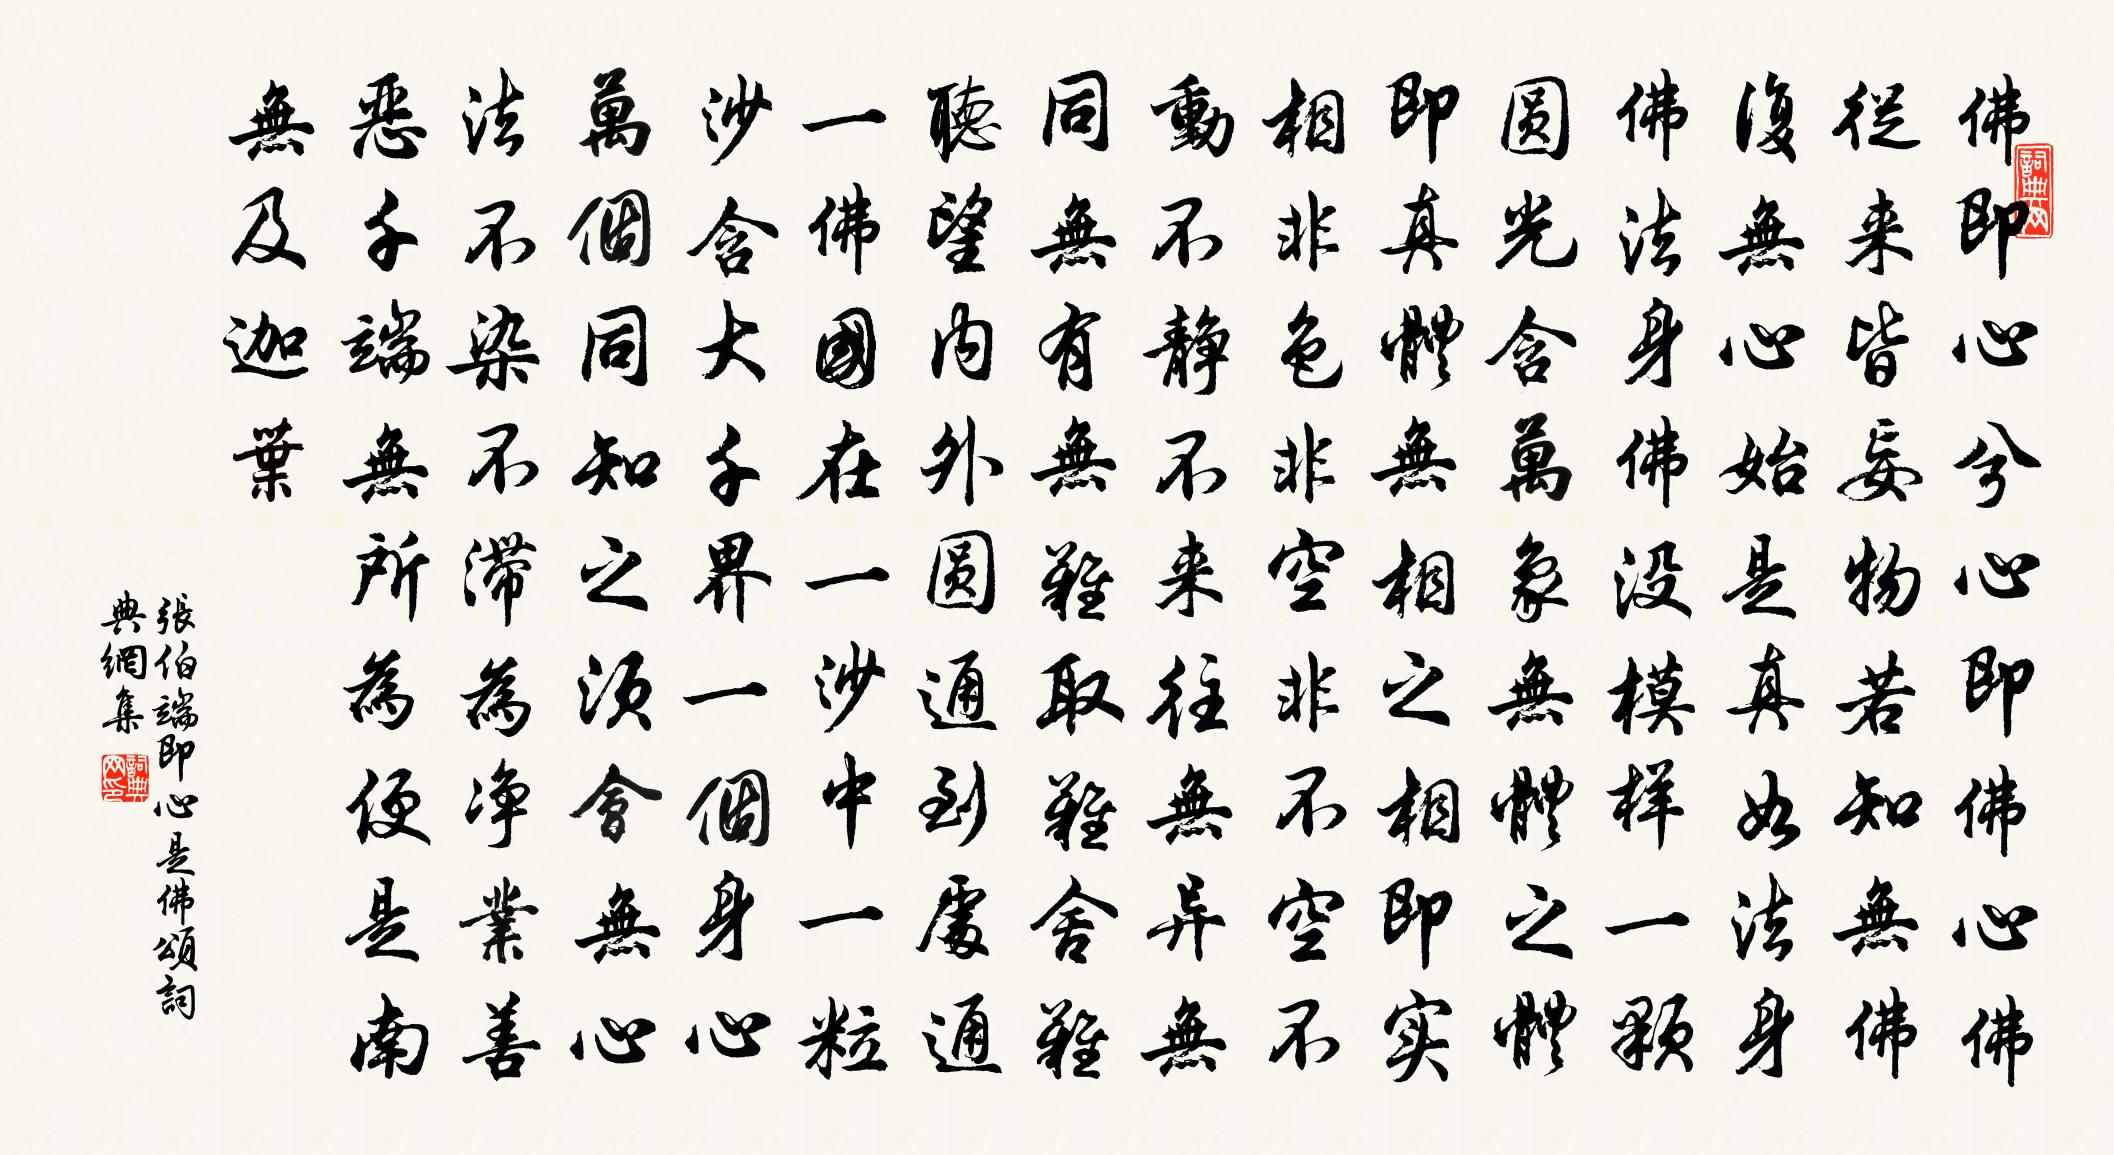 佛即心兮心即佛心佛
從来皆妄物若知無佛
復無心始是真如法身
佛法身佛没模样一顆
圆光含萬象無體之體
即真體無相之相即实
相非色非空非不空不
動不静不来往無异無
同無有無難取難舍難
聴望内外圆通到處通
一佛國在一沙中一粒
沙含大千界一個身心
萬個同知之须會無心
法不染不滞為净業善
恶千端無所為便是南
無及迦葉
張伯端即心是佛頌詞
典網集
詞典网
詞典网印